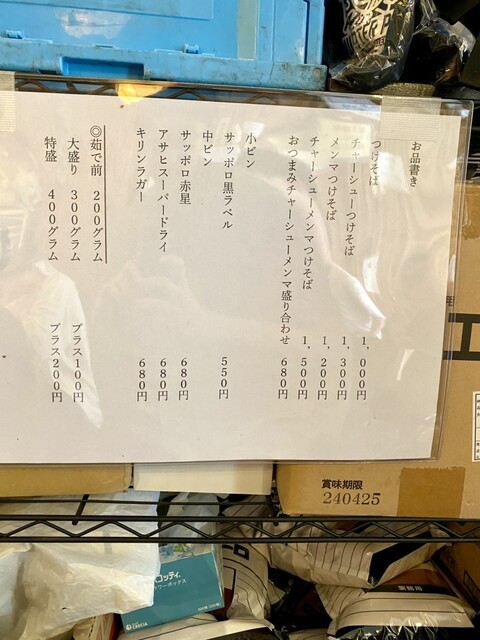 お品書き
つけそば 1,000円
チャーシューつけそば 1,300円
メンマつけそば 1,200円
チャーシューメンマつけそば 1,500円
おつまみチャーシューメンマ盛り合わせ 680円
小ビン
サッポロ黒ラベル 550円
中ビン
サッポロ赤星 680円
アサヒスーパードライ 680円
キリンラガー 680円
◎茹で前 200グラム
大盛り 300グラム プラス100円
特盛 400グラム プラス200円
賞味期限
240425
スコッティ
業務用